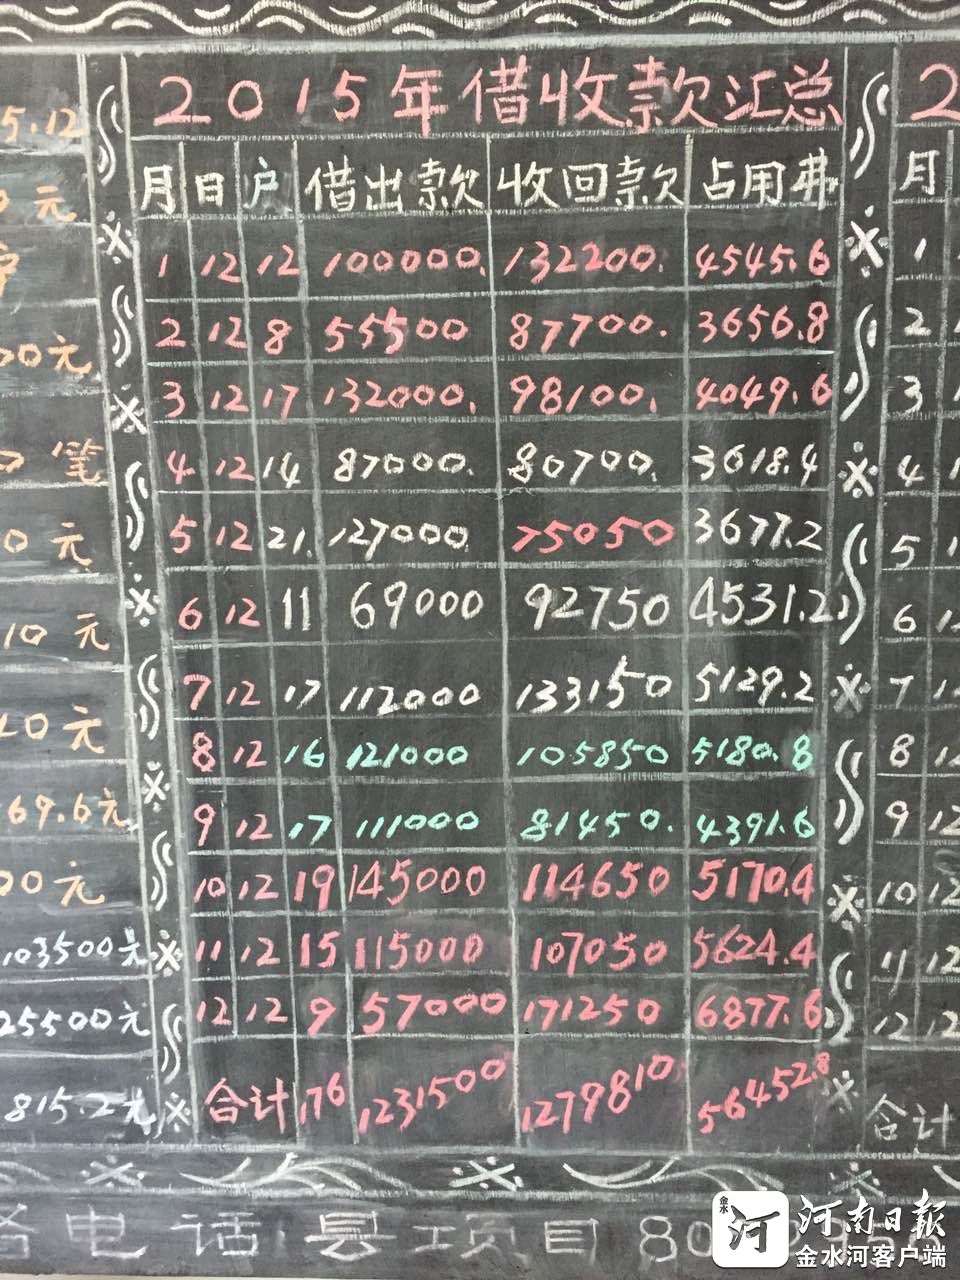 2015年借收款汇总
月 日 户 借出款 收回款 占用费
1 12 12 100000. 132200. 4545.6
2 12 8 55500 87700. 3656.8
3 12 17 132000. 98100. 4049.6
4 12 14 87000. 80700. 3618.4
5 12 21. 127000. 75050 3677.2
6 12 11 69000 92750 4531.2
7 12 17 112000 133150 5129.2
8 12 16 121000 105850 5180.8
9 12 17 111000 81450. 4391.6
10 12 19 145000 114650 5170.4
11 12 15 115000 107050 5624.4
12 12 9 57000 171250 6877.6
合计 176 1231500 1279810 56452.8
5.12
0元
00元
0笔
0元
10元
40元
69.6元
00元
103500元
25500元
815.2元
2
月
1
2
3
4
5
6
7
8
9 12
10 12
11 12
12 12
合计
电话县项目80
金水河
河南日报
金水河客户端